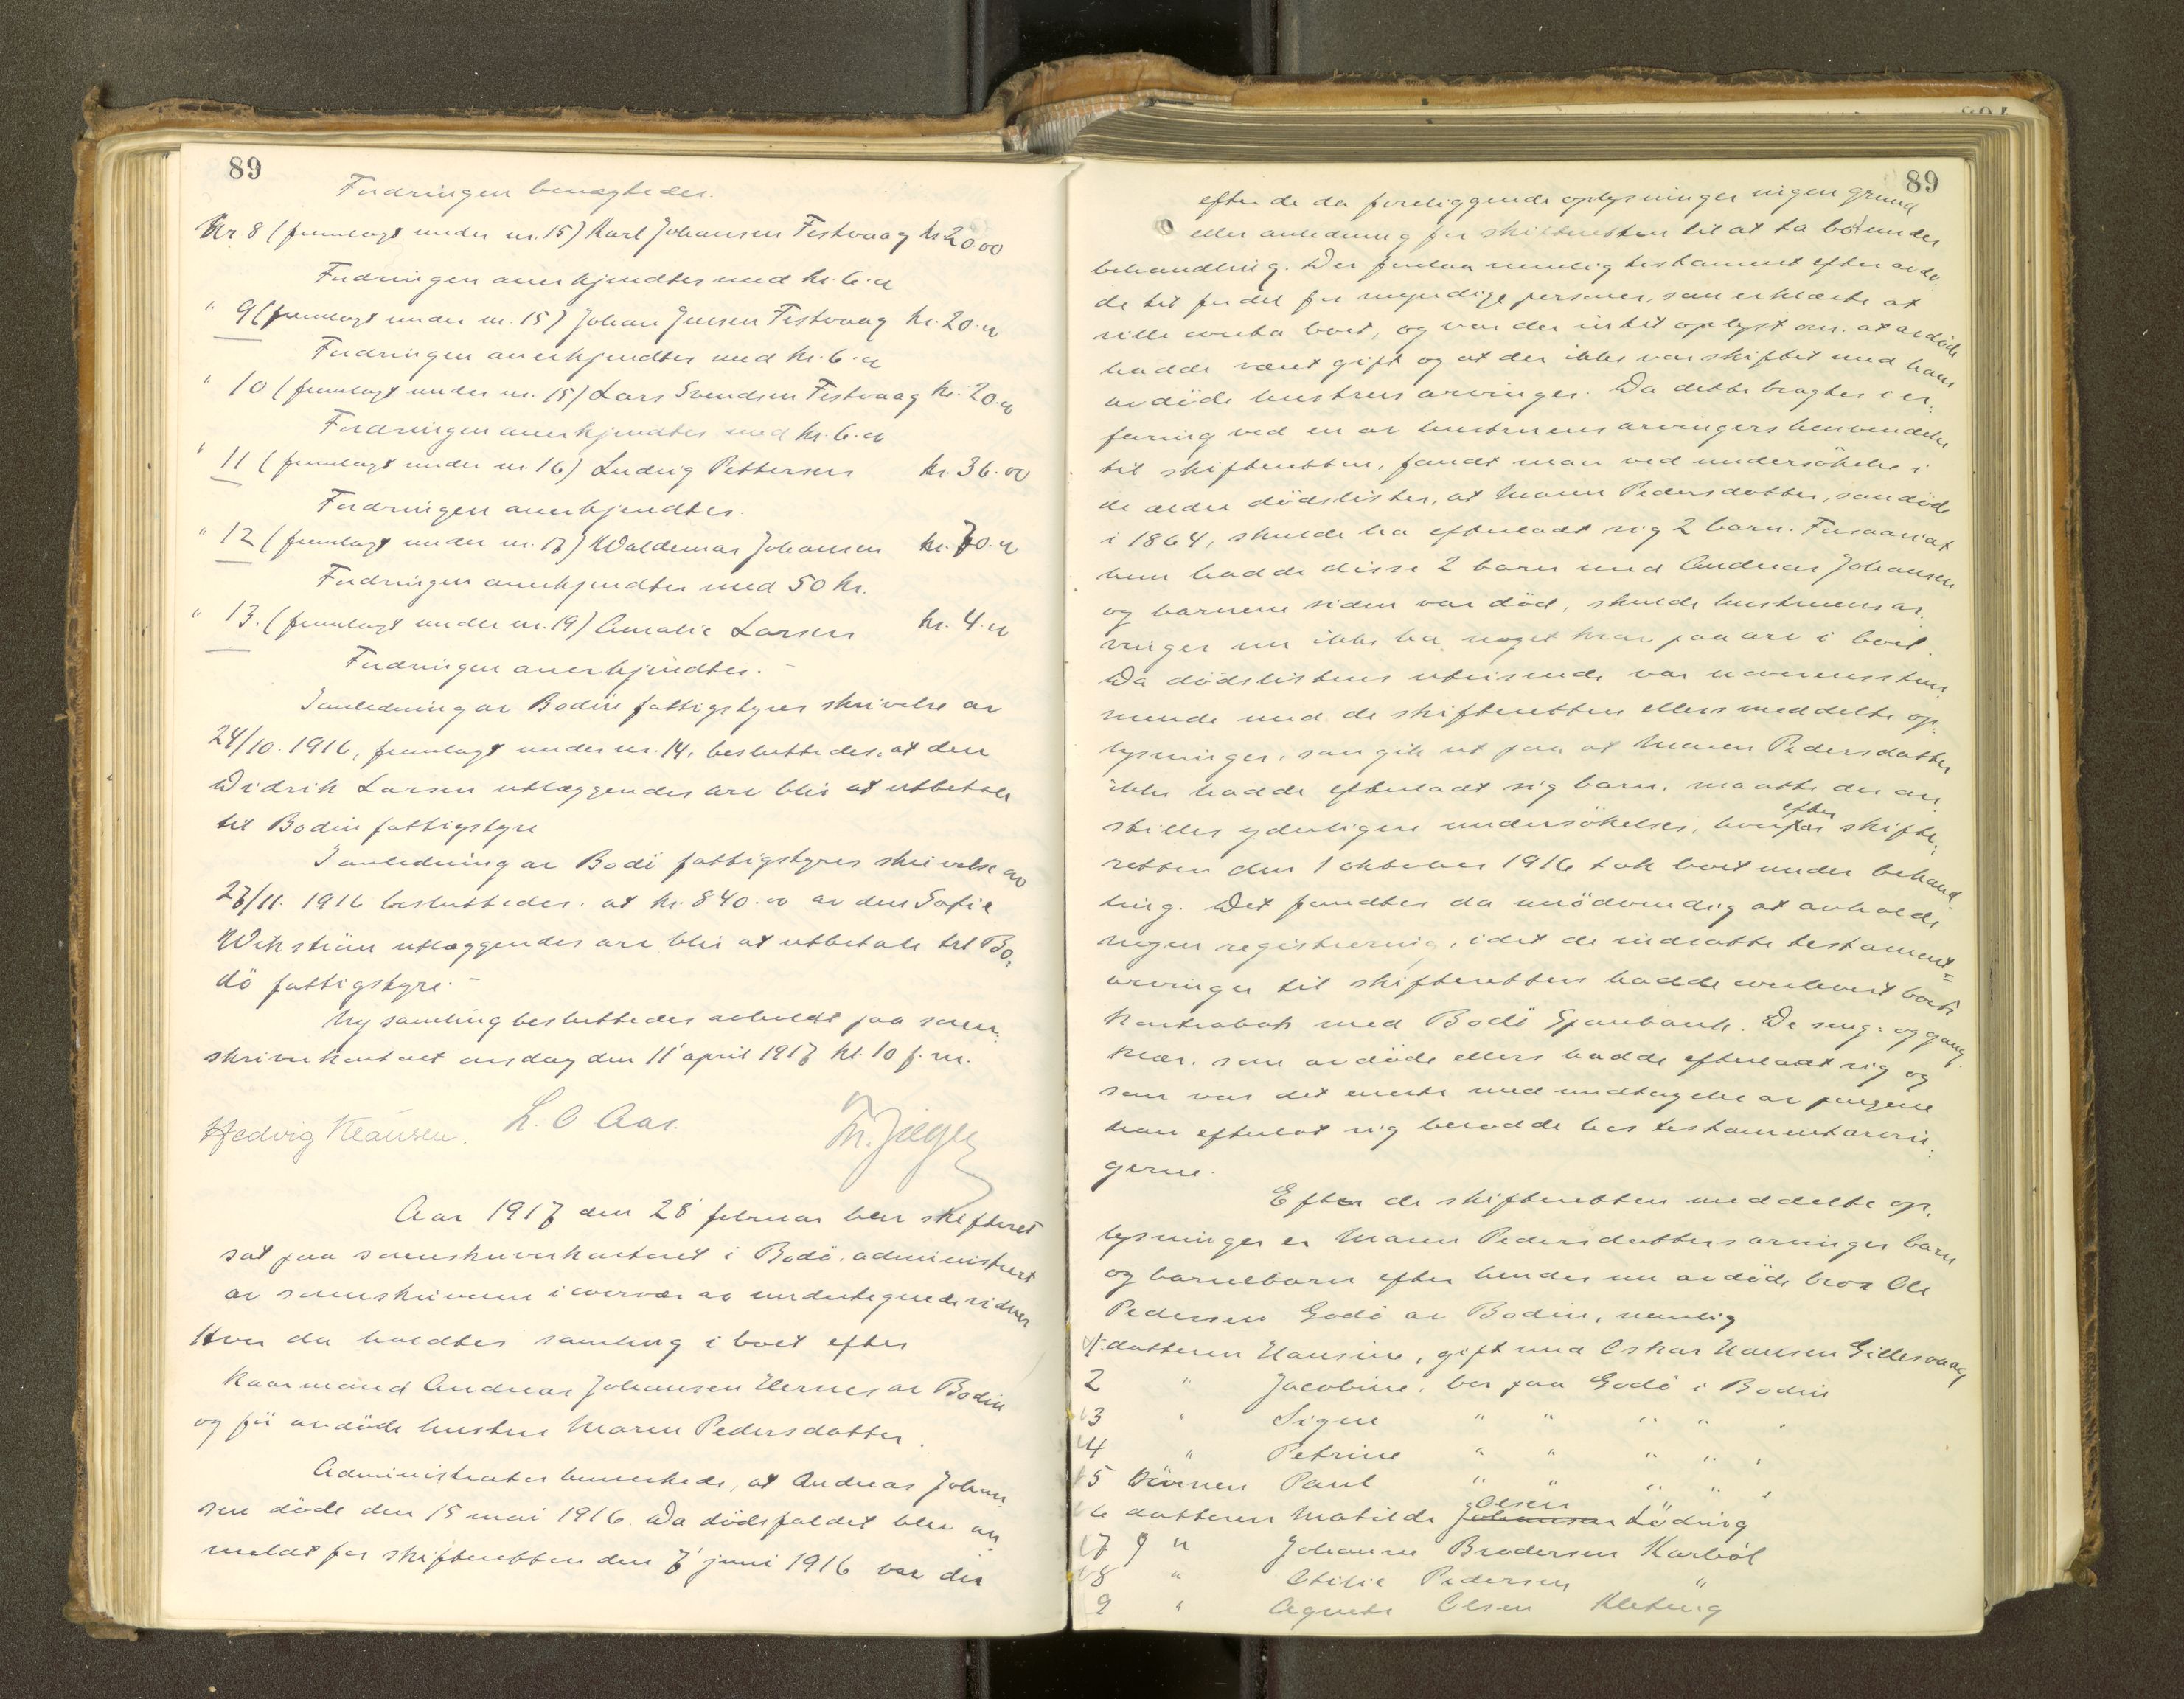 89
Fordringen benegtedes.
Nr. 8 (fremlagt under nr. 15) Karl Johansen Festvaag kr. 20.00
Fordringen anerkjendtes med kr. 6.00
" 9 (fremlagt under nr. 15) Johan Jensen Festvaag kr. 20.00
Fordringen anerkjendtes med kr. 6.00
" 10 (fremlagt under nr. 15) Lars Svendsen Festvaag kr. 20.00
Fordringen anerkjendtes med kr. 6.00
" 11 (fremlagt under nr 16) Ludvig Pettersen kr. 36.00
Fordringen anerkjendtes.
" 12 (fremlagt under nr. 17) Waldemar Johansen kr. 70.00
Fordringen anerkjendtes med 50 kr.
" 13. (fremlagt under nr. 19) Amalie Larsen kr. 4.00
Fordringen anerkjendtes.-
I anledning av Bodin fattigstyres skrivelse av
24/10. 1916, fremlagt under nr. 14, besluttedes, at den
Didrik Larsen utlæggendes arv blir at utbetale
til Bodin fattigstyre
I anledning av Bodö fattigstyres skrivelse av
27/11. 1916 besluttedes, at kr. 840.00 av den Sofie
Wikström utlæggendes arv blir at utbetale til Bo:
dö fattigstyre.-
Ny samling besluttedes avholdt paa soren:
skriverkontoret onsdag den 11' april 1917 kl. 10 f.m.
Hedvig Klausen. L. O Aas.
Aar 1917 den 28' februar blev skifteret
sat paa sorenskriverkontoret i Bodö, administrert
av sorenskriveren i overvær av undertegnede vidner
Hvor da holdtes samling i boet efter
kaarmand Andreas Johansen Hernes av Bodin
og för avdöde hustru Maren Pedersdatter.
Administrator bemerkede, at Andreas Johan:
sen döde den 15 mai 1916. Da dödsfaldet blev an:
meldt for skifteretten den 7' juni 1916 var der
89
efter de da foreliggende oplysninger ingen grund
eller anledning for skifteretten til at ta boet under
behandling. Der forelaa nemlig testament efter avdö:
de til fordel for myndige personer, som erklærte at
ville overta boet, og var der intet oplyst om, at avdöde
hadde været gift og at der ikke var skiftet med hans
avdöde hustrus arvinger. Da dette bragtes i er:
faring ved en av hustruens arvingers henvendelse
til skifteretten, fandt man ved undersökelse i
de ældre dödslister, at Maren Pedersdatter, som döde
i 1864, skulde ha efterladt sig 2 barn. Forsaavidt
hun hadde disse 2 barn med Andreas Johansen
og barnene siden var död, skulde hustruens ar:
vinger nu ikke ha noget krav paa arv i boet.
Da dödslistens utvisende var uoverensstem:
mende med de skifteretten ellers meddelte op:
lysninger, som gik ut paa at Maren Pedersdatter
ikke hadde efterladt sig barn, maatte der an:
stilles yderligere undersökelser, hvorefter skifte:
retten den 1 oktober 1916 tok boet under behand
ling. Det fandtes da unödvendig at avholde
nogen registrering, idet de indsatte testament=
arvinger til skifteretten hadde overlevert boets
kontrabok med Bodö Sparebank. De seng: og gang:
klær, som avdöde ellers hadde efterladt sig og
som var det eneste med undtagelse av pengene
han efterlot sig beroedde hos testamentarvin:
gerne.
Efter de skifteretten meddelte op:
lysninger er Maren Pedersdatters arvinger barn
og barnebarn efter hendes nu avdöde bror Ole
Pedersen Godö av Bodin, nemlig
1. datteren Hansine, gift med Oskar Hansen Gillesvaag
2 " Jacobine, bor paa Godö i Bodin
3 " Signe " " " " "
4 " Petrine " " " " "
5 sönnen Paul " " " " "
6 datteren Matilde Johansen Olsen Löding
7 " Johanne Brodersen Karböl
8 " Otilie Pedersen "
9 " Agnete Olsen Kletnig